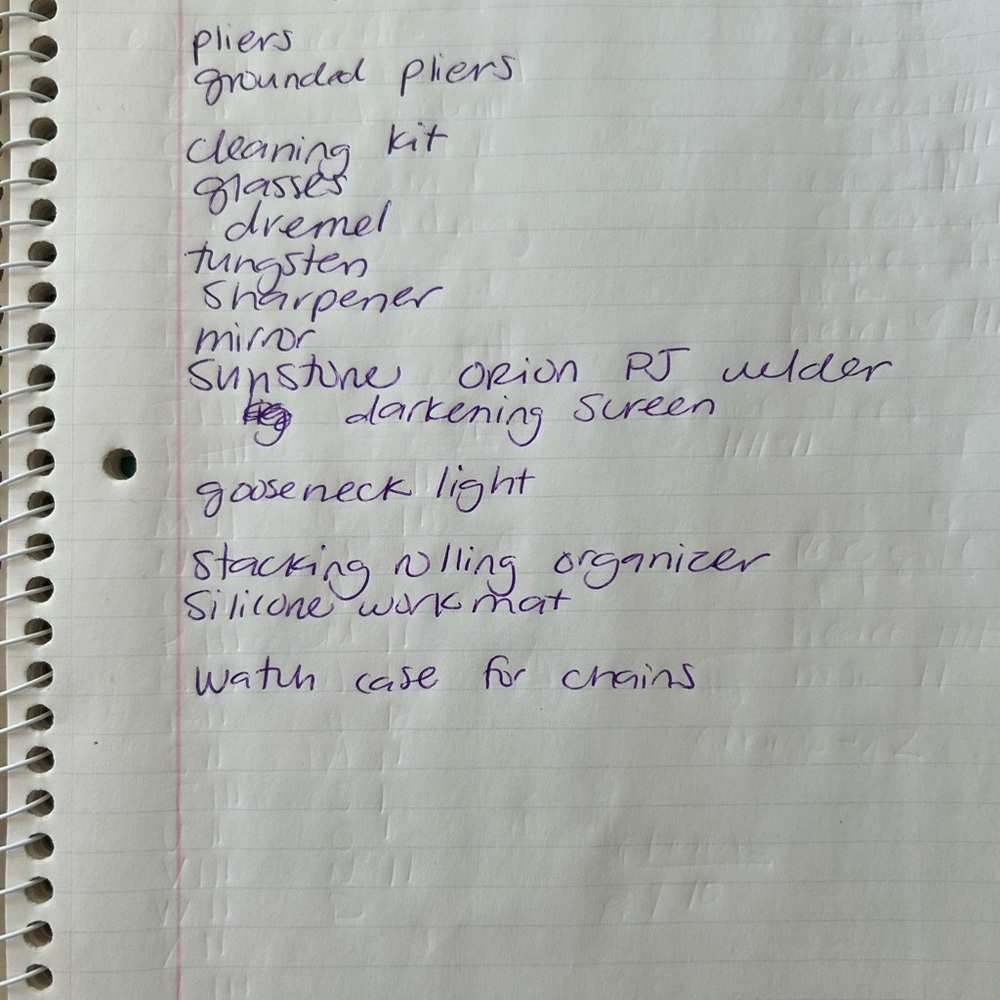 pliers
grounded pliers
cleaning kit
glasses
dremel
tungsten
sharpener
mirror
Sunstone orion PJ welder
darkening screen
gooseneck light
Stacking rolling organizer
Silicone work mat
Watch case for chains